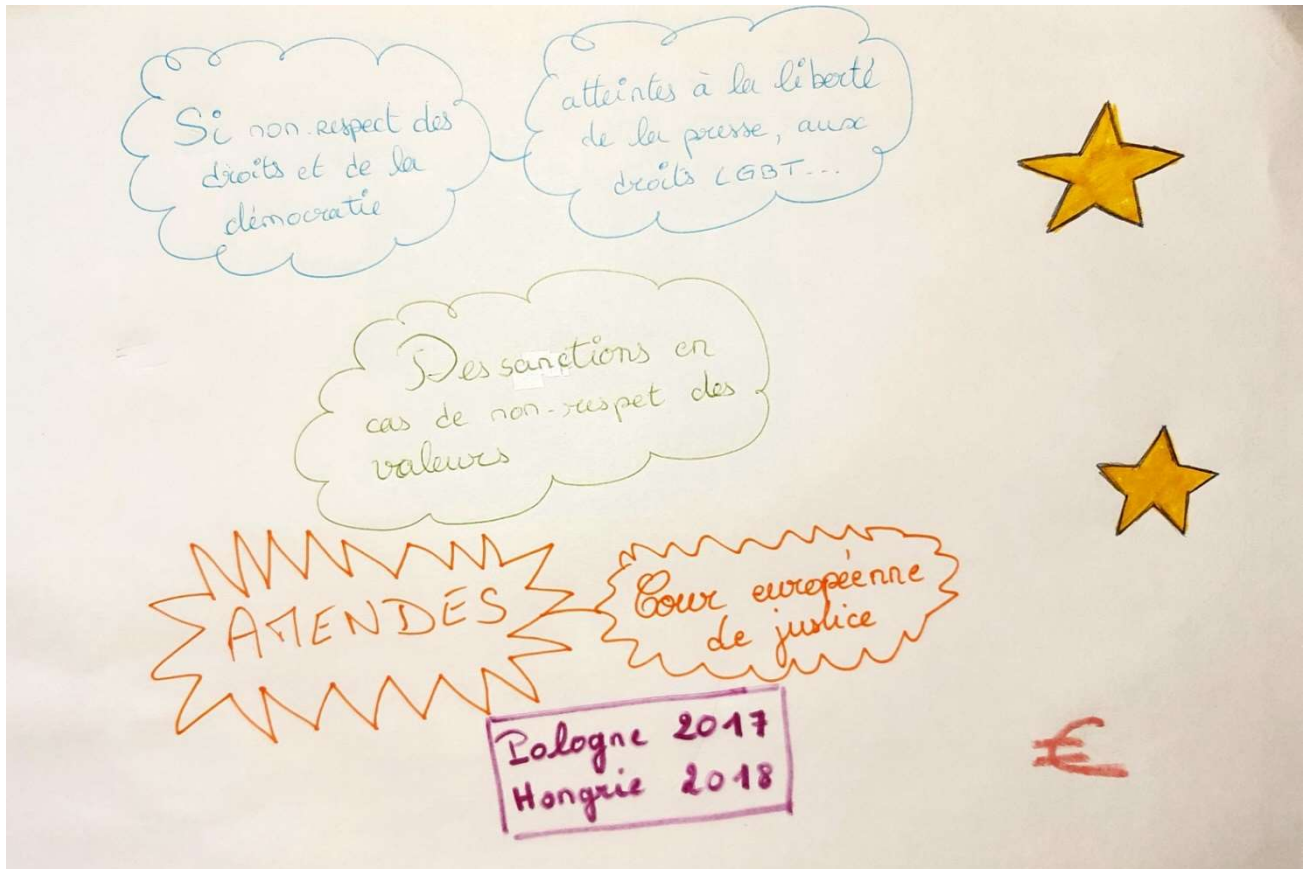 Si non-respect des
droits et de la
démocratie
atteintes à la liberté
de la presse, aux
droits LGBT...
Des sanctions en
cas de non-respet des
valeurs
AMENDES
Cour européenne
de justice
Pologne 2017
Hongrie 2018
€